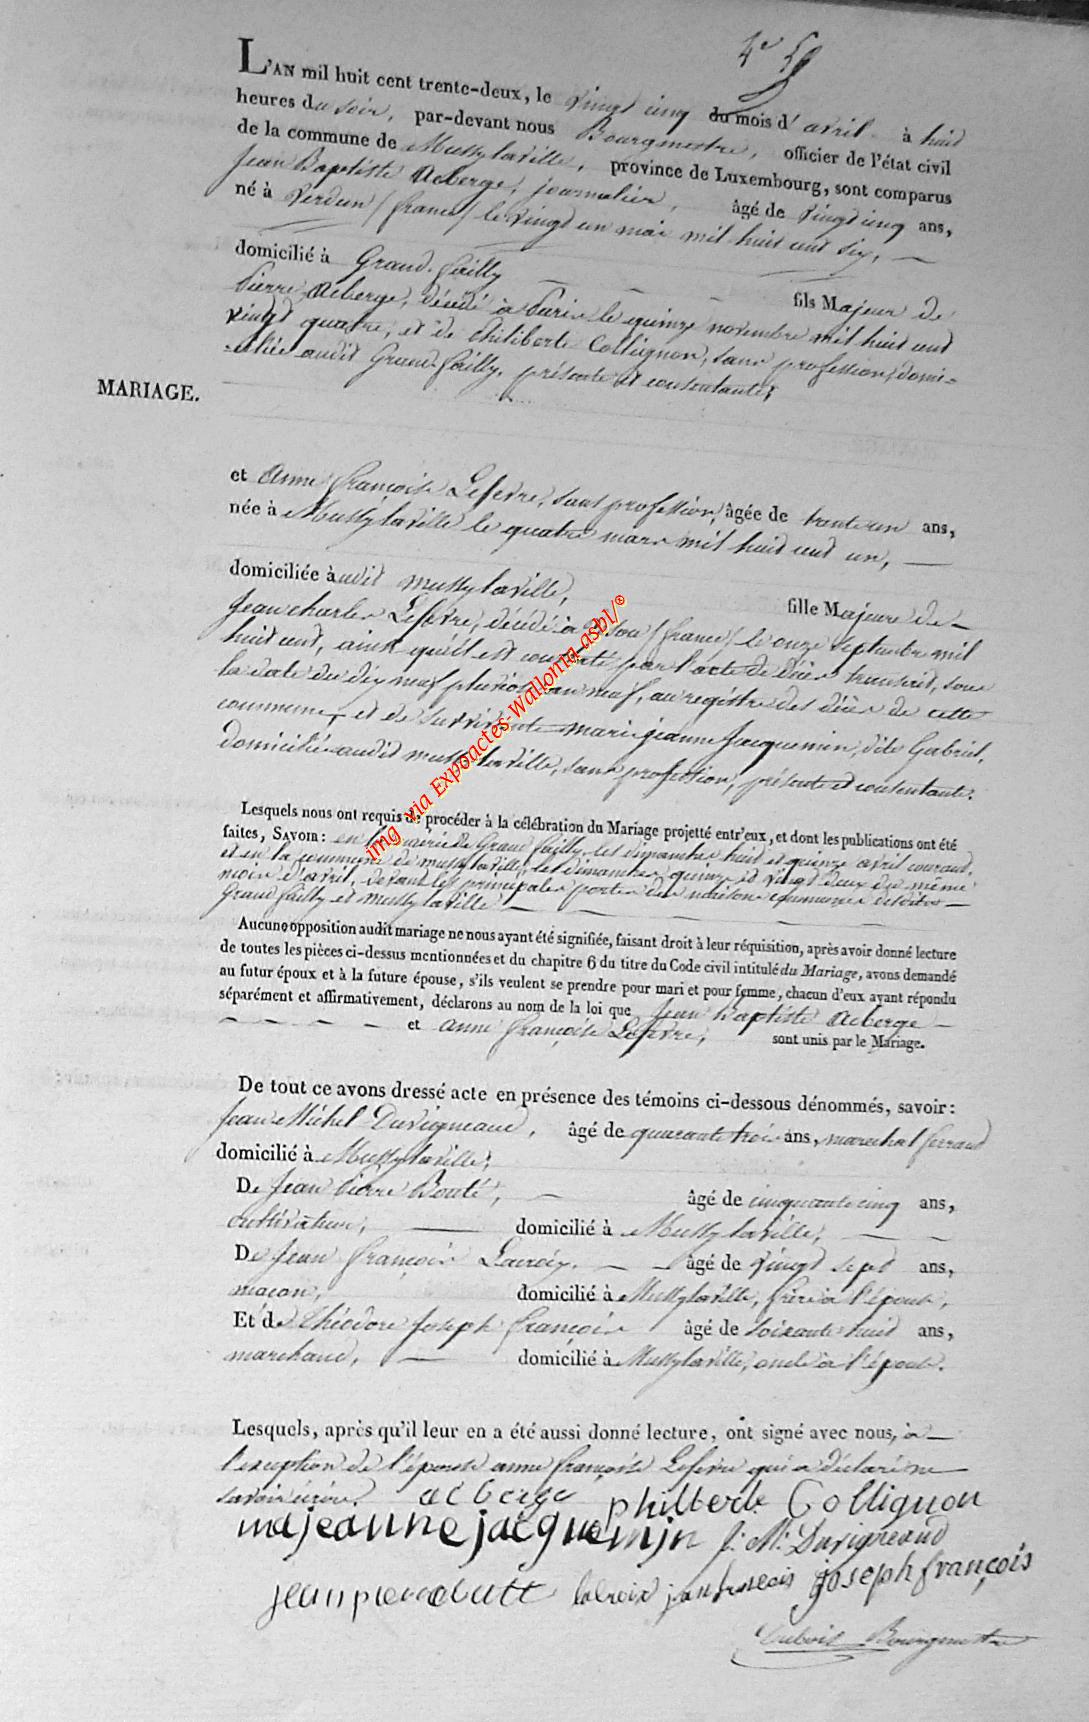 4e
L'AN mil huit cent trente-deux, le vingt cinq du mois d'avril à huit
heures du soir, par-devant nous Bourgmestre, officier de l'état civil
de la commune de Mussylaville, province de Luxembourg, sont comparus
Jean Baptiste Acberge, journalier, âgé de vingt cinq ans,
né à Verdun /france/ le vingt un mai mil huit cent six,
domicilié à Grand-failly fils Majeur de
Pierre Acberge, décédé à Paris le quinze novembre mil huit cent
vingt quatre, et de Philiberte Collignon, sans profession, domi-
-ciliée audit Grand-failly, présente et consentante;
MARIAGE.
et Anne françoise Lefevre, sans profession, âgée de trente un ans,
née à Mussylaville le quatre mars mil huit cent un,
domiciliée audit mussylaville, fille Majeure de
Jean charles Lefevre, décédé à /france/ le onze septembre mil
huit cent, ainsi qu'il est constaté par l'acte de décès transcrit, sous
la date du dix neuf pluviose an neuf, au registre des décès de cette
commune, et de survivante marie jeanne Jacquemin, dite Gabriel,
domiciliée audit mussylaville, sans profession, présente et consentante.
Lesquels nous ont requis de procéder à la célébration du Mariage projetté entr'eux, et dont les publications ont été
faites, SAVOIR: en la mairie de Grand failly, les dimanches huit et quinze avril courant,
et en la commune de mussylaville, les dimanches quinze et vingt deux du même
mois d'avril, devant les principales portes des maisons communes desdites
Grand failly et mussylaville
Aucune opposition audit mariage ne nous ayant été signifiée, faisant droit à leur réquisition, après avoir donné lecture
de toutes les pièces ci-dessus mentionnées et du chapitre 6 du titre du Code civil intitulé du Mariage, avons demandé
au futur époux et à la future épouse, s'ils veulent se prendre pour mari et pour femme, chacun d'eux ayant répondu
séparément et affirmativement, déclarons au nom de la loi que Jean Baptiste Acberge
et anne françoise Lefevre, sont unis par le Mariage.
De tout ce avons dressé acte en présence des témoins ci-dessous dénommés, savoir:
Jean Michel Duvigneaud, âgé de quarante trois ans, marechal ferrand
domicilié à Mussylaville;
De Jean Pierre Bouté, âgé de cinquante cinq ans,
cultivateur, domicilié à Mussylaville;
De Jean françois Lacroix, âgé de vingt sept ans,
maçon, domicilié à Mussylaville, frère à l'épouse,
Et de Théodore Joseph françois âgé de soixante huit ans,
marchand, domicilié à Mussylaville, oncle à l'épouse.
Lesquels, après qu'il leur en a été aussi donné lecture, ont signé avec nous, à
l'exception de l'épouse anne françoise Lefevre qui a déclaré ne
savoir écrire.
acberge philberte Collignon
majeanne jacquemin J. M. Duvigneaud
jean pierre butt lacroix jan fransois joseph françois
Dubois Bourgmestre
img via Expoactes-Wallonia asbl/®